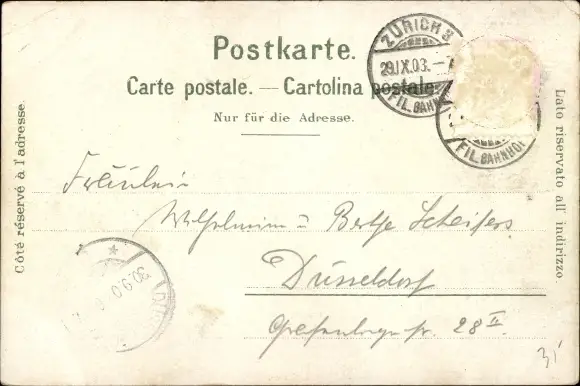 Postkarte.
Carte postale. — Cartolina postale.
Nur für die Adresse.
Côté réservé à l'adresse.
Lato riservato all' indirizzo.
ZÜRICH 3
29.IX.03.–7
FIL. BAHNHOF
FIL. BAHNHOF
Fräulein
Wilhelmine u Berthe Scheifers
Düsseldorf
28 II
30.9.0
31